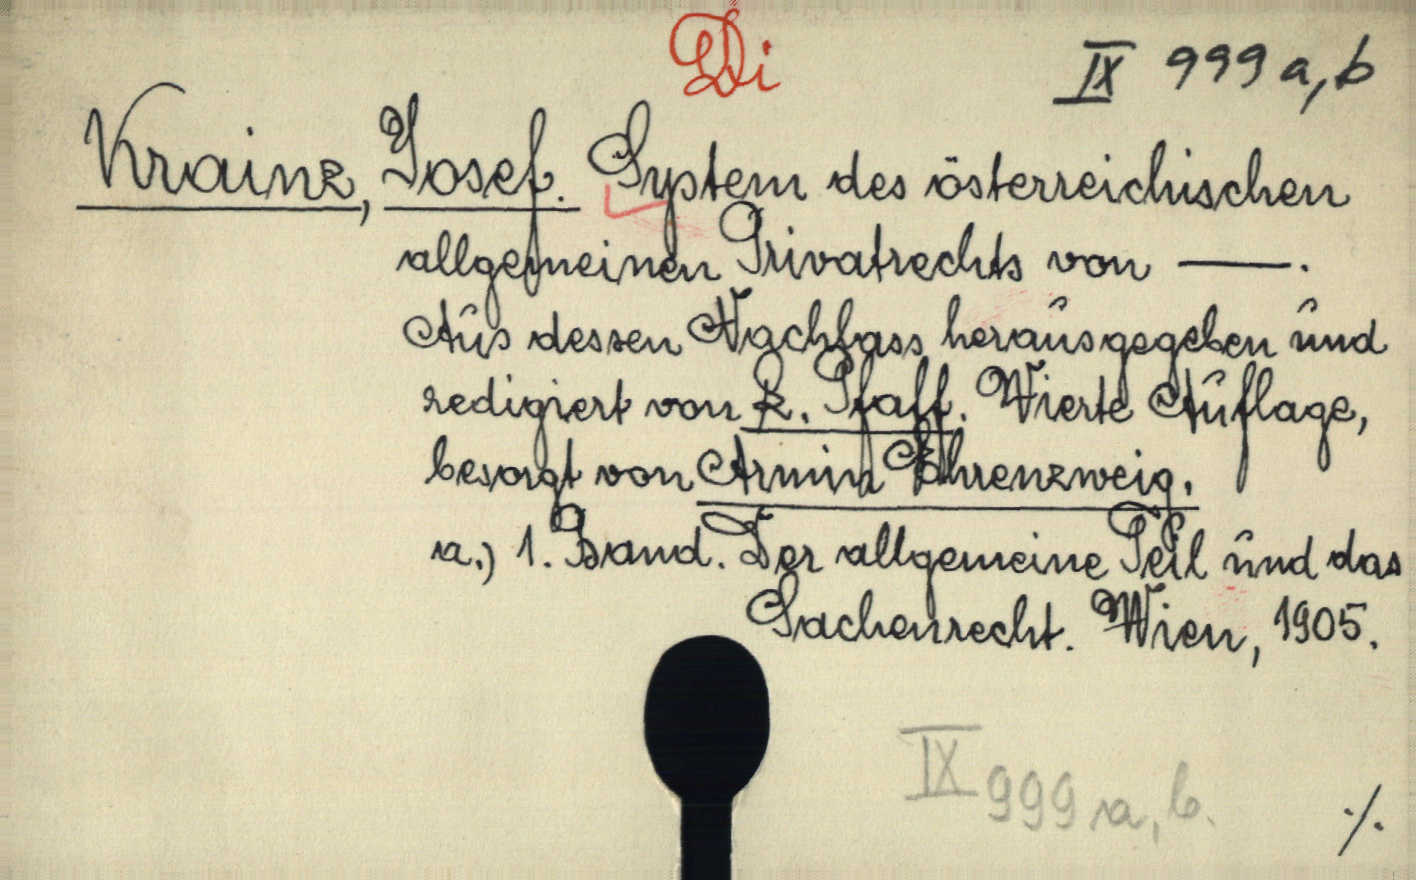 Di
IX 999 a, b
Krainz, Josef. System des österreichischen
allgemeinen Privatrechts von —.
Aus dessen Nachlass herausgegeben und
redigiert von L. Pfaff. Vierte Auflage,
besorgt von Armin Ehrenzweig.
a.) 1. Band. Der allgemeine Teil und das
Sachenrecht. Wien, 1905.
IX 999 a, b.
./.